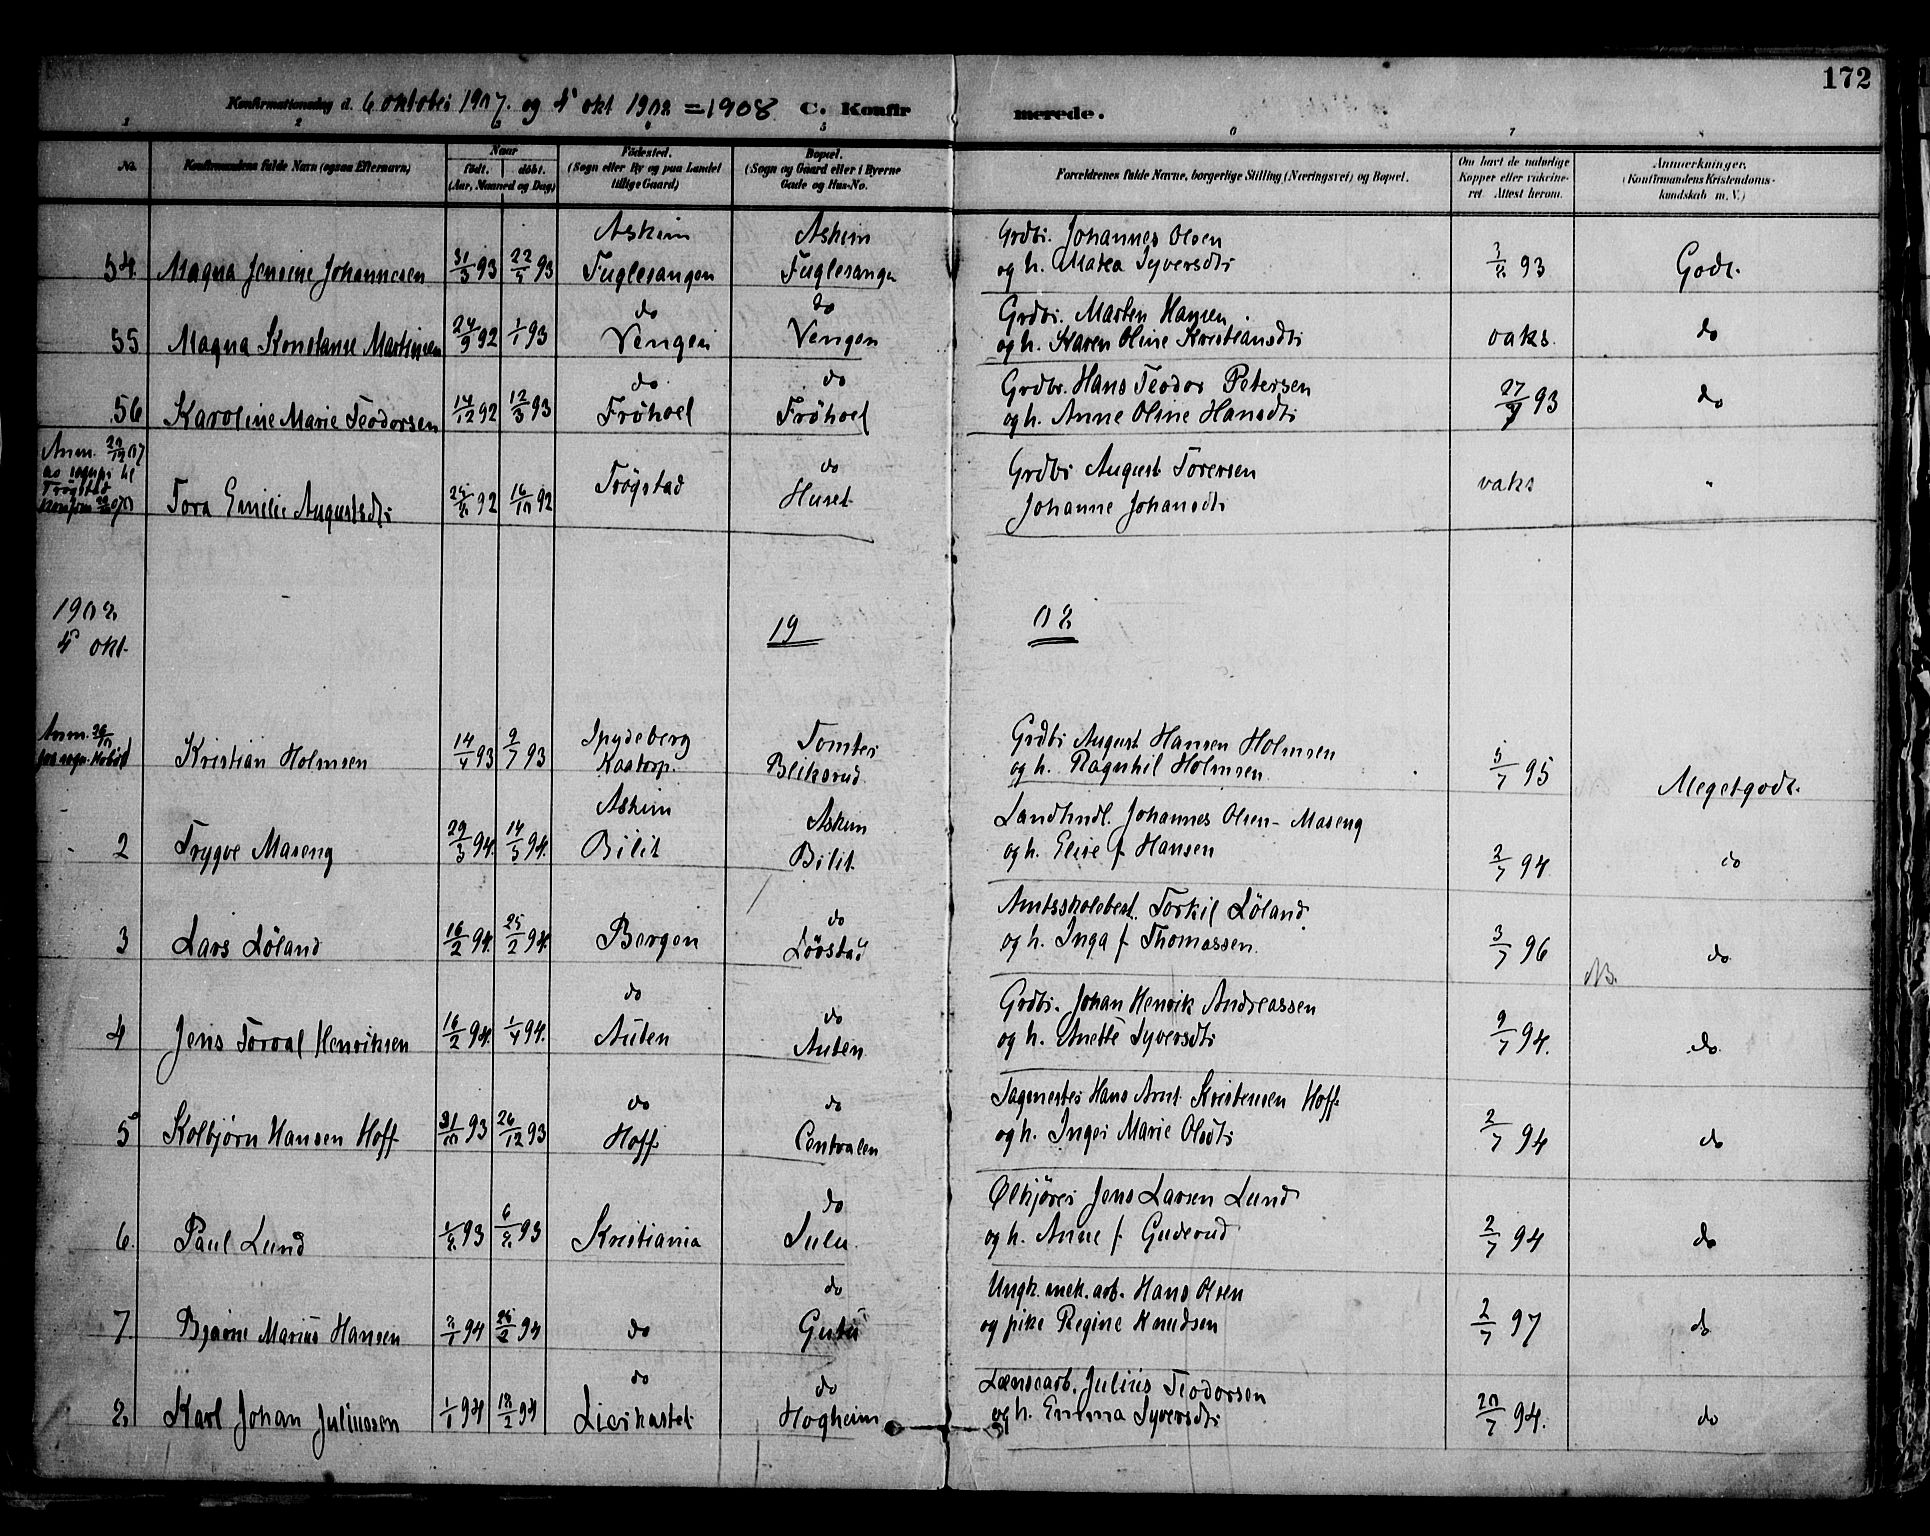 172
Konfirmationsdag d. 6 oktober 1907. og 4 okt 1908 = 1908 C. Konfirmerede.
1 2 3 4 5 6 7
No. Konfirmandens fulde Navn (ogsaa Efternavn) Naar født. døbt. (Aar, Maaned og Dag) Fødested. (Sogn eller By og paa Landet tillige Gaard) Bopæl. (Sogn og Gaard eller i Byerne Gade og Hus-No. Forældrenes fulde Navne, borgerlige Stilling (Næringsvei) og Bopæl. Om havt de naturlige Kopper eller vakcineret Attest herom. Anmærkninger. (Konfirmandens Kristendomskundskab m. V.)
Askim Askim Grdbr. Johannes Olsen
54 Magna Jensine Johannesen 31/3 93 22/5 93 Fuglesangen Fuglesangen og h. Matea Syversdtr 93 Godt.
do do Grdbr. Marten Hansen
55 Magna Konstanse Martinsen 24/9 92 1/1 93 Vengen Vengen og h. Karen Oline Kristiansdtr vaks. do
do do Grdbr. Hans Teodor Petersen
56 Karoline Marie Teodorsen 14/12 92 12/3 93 Frøhoel Frøhoel og h. Anne Oline Hansdtr 27/7 93 do
Anm. 22/12 07 Trøgstad do Grdbr August Torersen
Tora Emilie Augustsdtr 92 16/10 92 Huset Johanne Johansdtr vaks "
1908
4 okt. 19 08
Anm. Spydeberg Tomter Grdbr August Hansen Holmsen
Kristian Holmsen 14/4 93 9/7 93 Kaatorp. Bliksrud og h. Ragnhil Holmsen 5/7 95 Megetgodt.
Askim Askim Landhndl. Johannes Olsen-Maseng
2 Trygve Maseng 29/3 94. 14/5 94. Bilit Bilit og h. Elise f Hansen 2/7 94 do
do Amtsskolebest. Torkil Løland
3 Lars Løland 16/2 94. 25/2 94. Bergen Løvstad og h. Inga f Thomassen. 3/7 96 do
NB.
do do Grdbr. Johan Henrik Andreassen
4 Jens Torval Henriksen 16/2 94. 1/4 94. Auten Auten og h. Anette Syversdtr 9/7 94. do
do do Sagmester Hans Arnt Kristensen Hoff
5 Kolbjørn Hansen Hoff 31/10 93 26/12 93 Hoff Centralen og h. Inger Marie Olsdtr 2/7 94 do
do Ølkjører Jens Larsen Lund
6. Paul Lund 1/8 93 6/8 93 Kristiania Sulu. og h. Anne f Guderud 2/7 94 do
do Ungk. mek. arb. Hans Olsen
7 Bjarne Marius Hansen 94 25/2 94 do Gutu og pike Regine Knudsen 2/7 97 do
do do Lænsearb. Julius Teodorsen
8 Karl Johan Juliussen 1/1 94 18/2 94 Lierkastet Høgheim og h. Emma Syversdtr 20/7 94. do